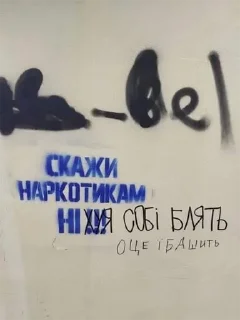 СКАЖИ
НАРКОТИКАМ
НІ!!! ХУЯ СОБІ БЛЯТЬ
ОЦЕ ЇБАШИТЬ